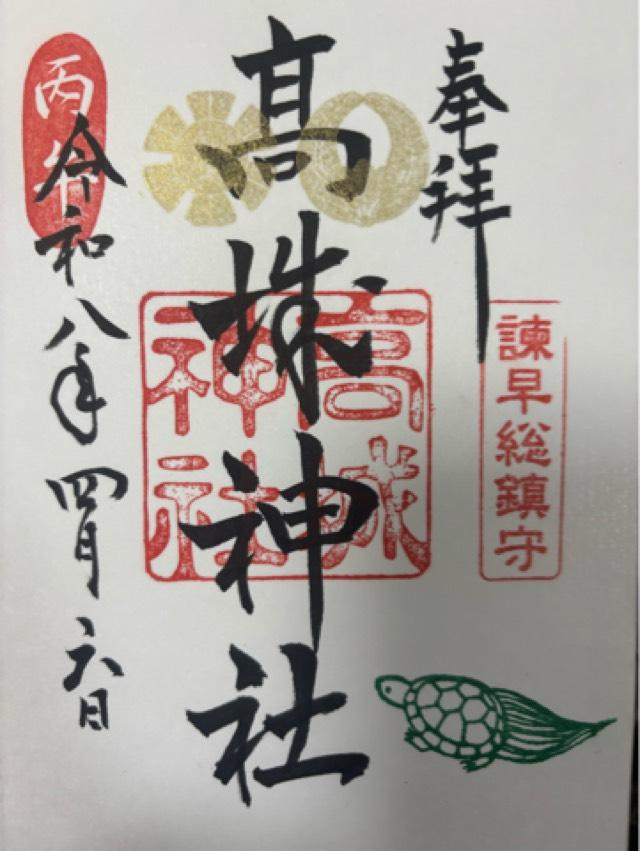 奉拝
諫早総鎮守
高城神社
高城神社
丙午
令和八年四月六日